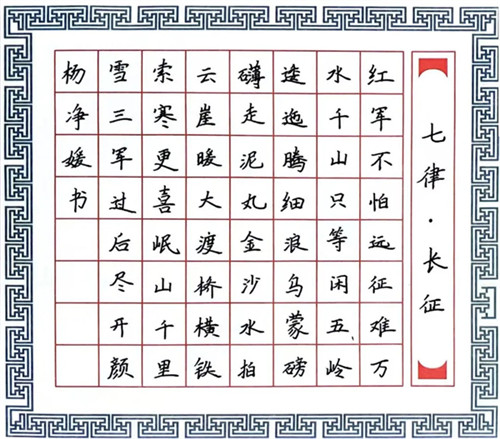 七律·长征
红军不怕远征难万
水千山只等闲五岭
逶迤腾细浪乌蒙磅
礴走泥丸金沙水拍
云崖暖大渡桥横铁
索寒更喜岷山千里
雪三军过后尽开颜
杨净媛书